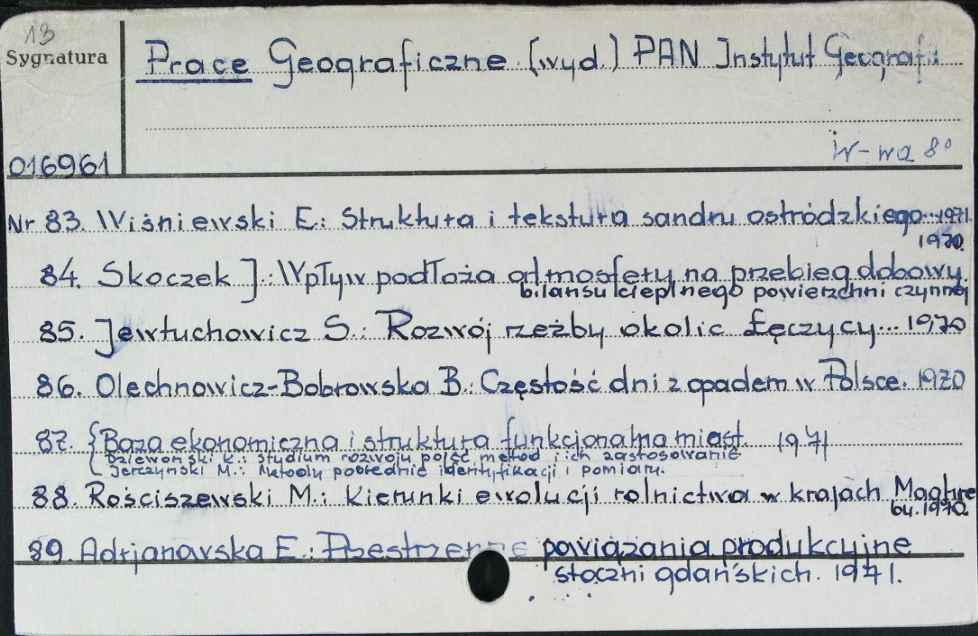 13
Sygnatura
Prace Geograficzne (wyd.) PAN Instytut Geografii
W-wa 8°
016961
Nr 83. Wiśniewski E.: Struktura i tekstura sandru ostródzkiego...1971
1970.
84. Skoczek J.: Wpływ podłoża atmosfery na przebieg dobowy
bilansu cieplnego powierzchni czynnej
85. Jewtuchowicz S.: Rozwój rzeźby okolic Łęczycy... 1970
86. Olechnowicz-Bobrowska B.: Częstość dni z opadem w Polsce. 1970
87. {Baza ekonomiczna i struktura funkcjonalna miast. 1971
Dziewoński K.: Studium rozwoju pojęć metod i ich zastosowanie
Jerczyński M.: Metody pośrednie identyfikacji i pomiaru.
88. Rościszewski M.: Kierunki ewolucji rolnictwa w krajach Maghre
bu. 1970.
89. Adrjanowska E.: Przestrzenne powiązania produkcyjne
stoczni gdańskich. 1971.